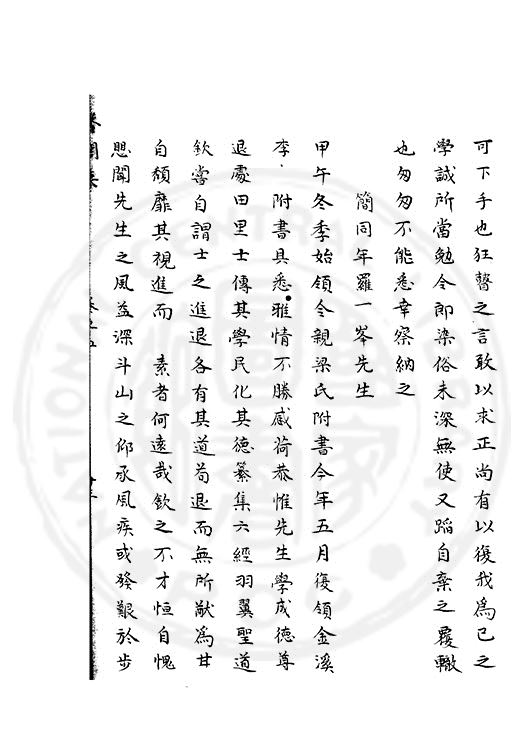 可下手也狂瞽之言敢以求正尚有以復我為已之
學誠所當勉令郎染俗未深無使又蹈自棄之覆轍
也匆匆不能悉幸察納之
簡同年羅一峯先生
甲午冬季始領令親梁氏附書今年五月復領金溪
李附書具悉雅情不勝感荷恭惟先生學成德尊
退處田里士傳其學民化其德纂集六經羽翼聖道
欽嘗自謂士之進退各有其道苟退而無所猷為甘
自頹靡其視進而素者何遠哉欽之不才恒自愧
愳聞先生之風益深斗山之仰承風疾或發艱於步